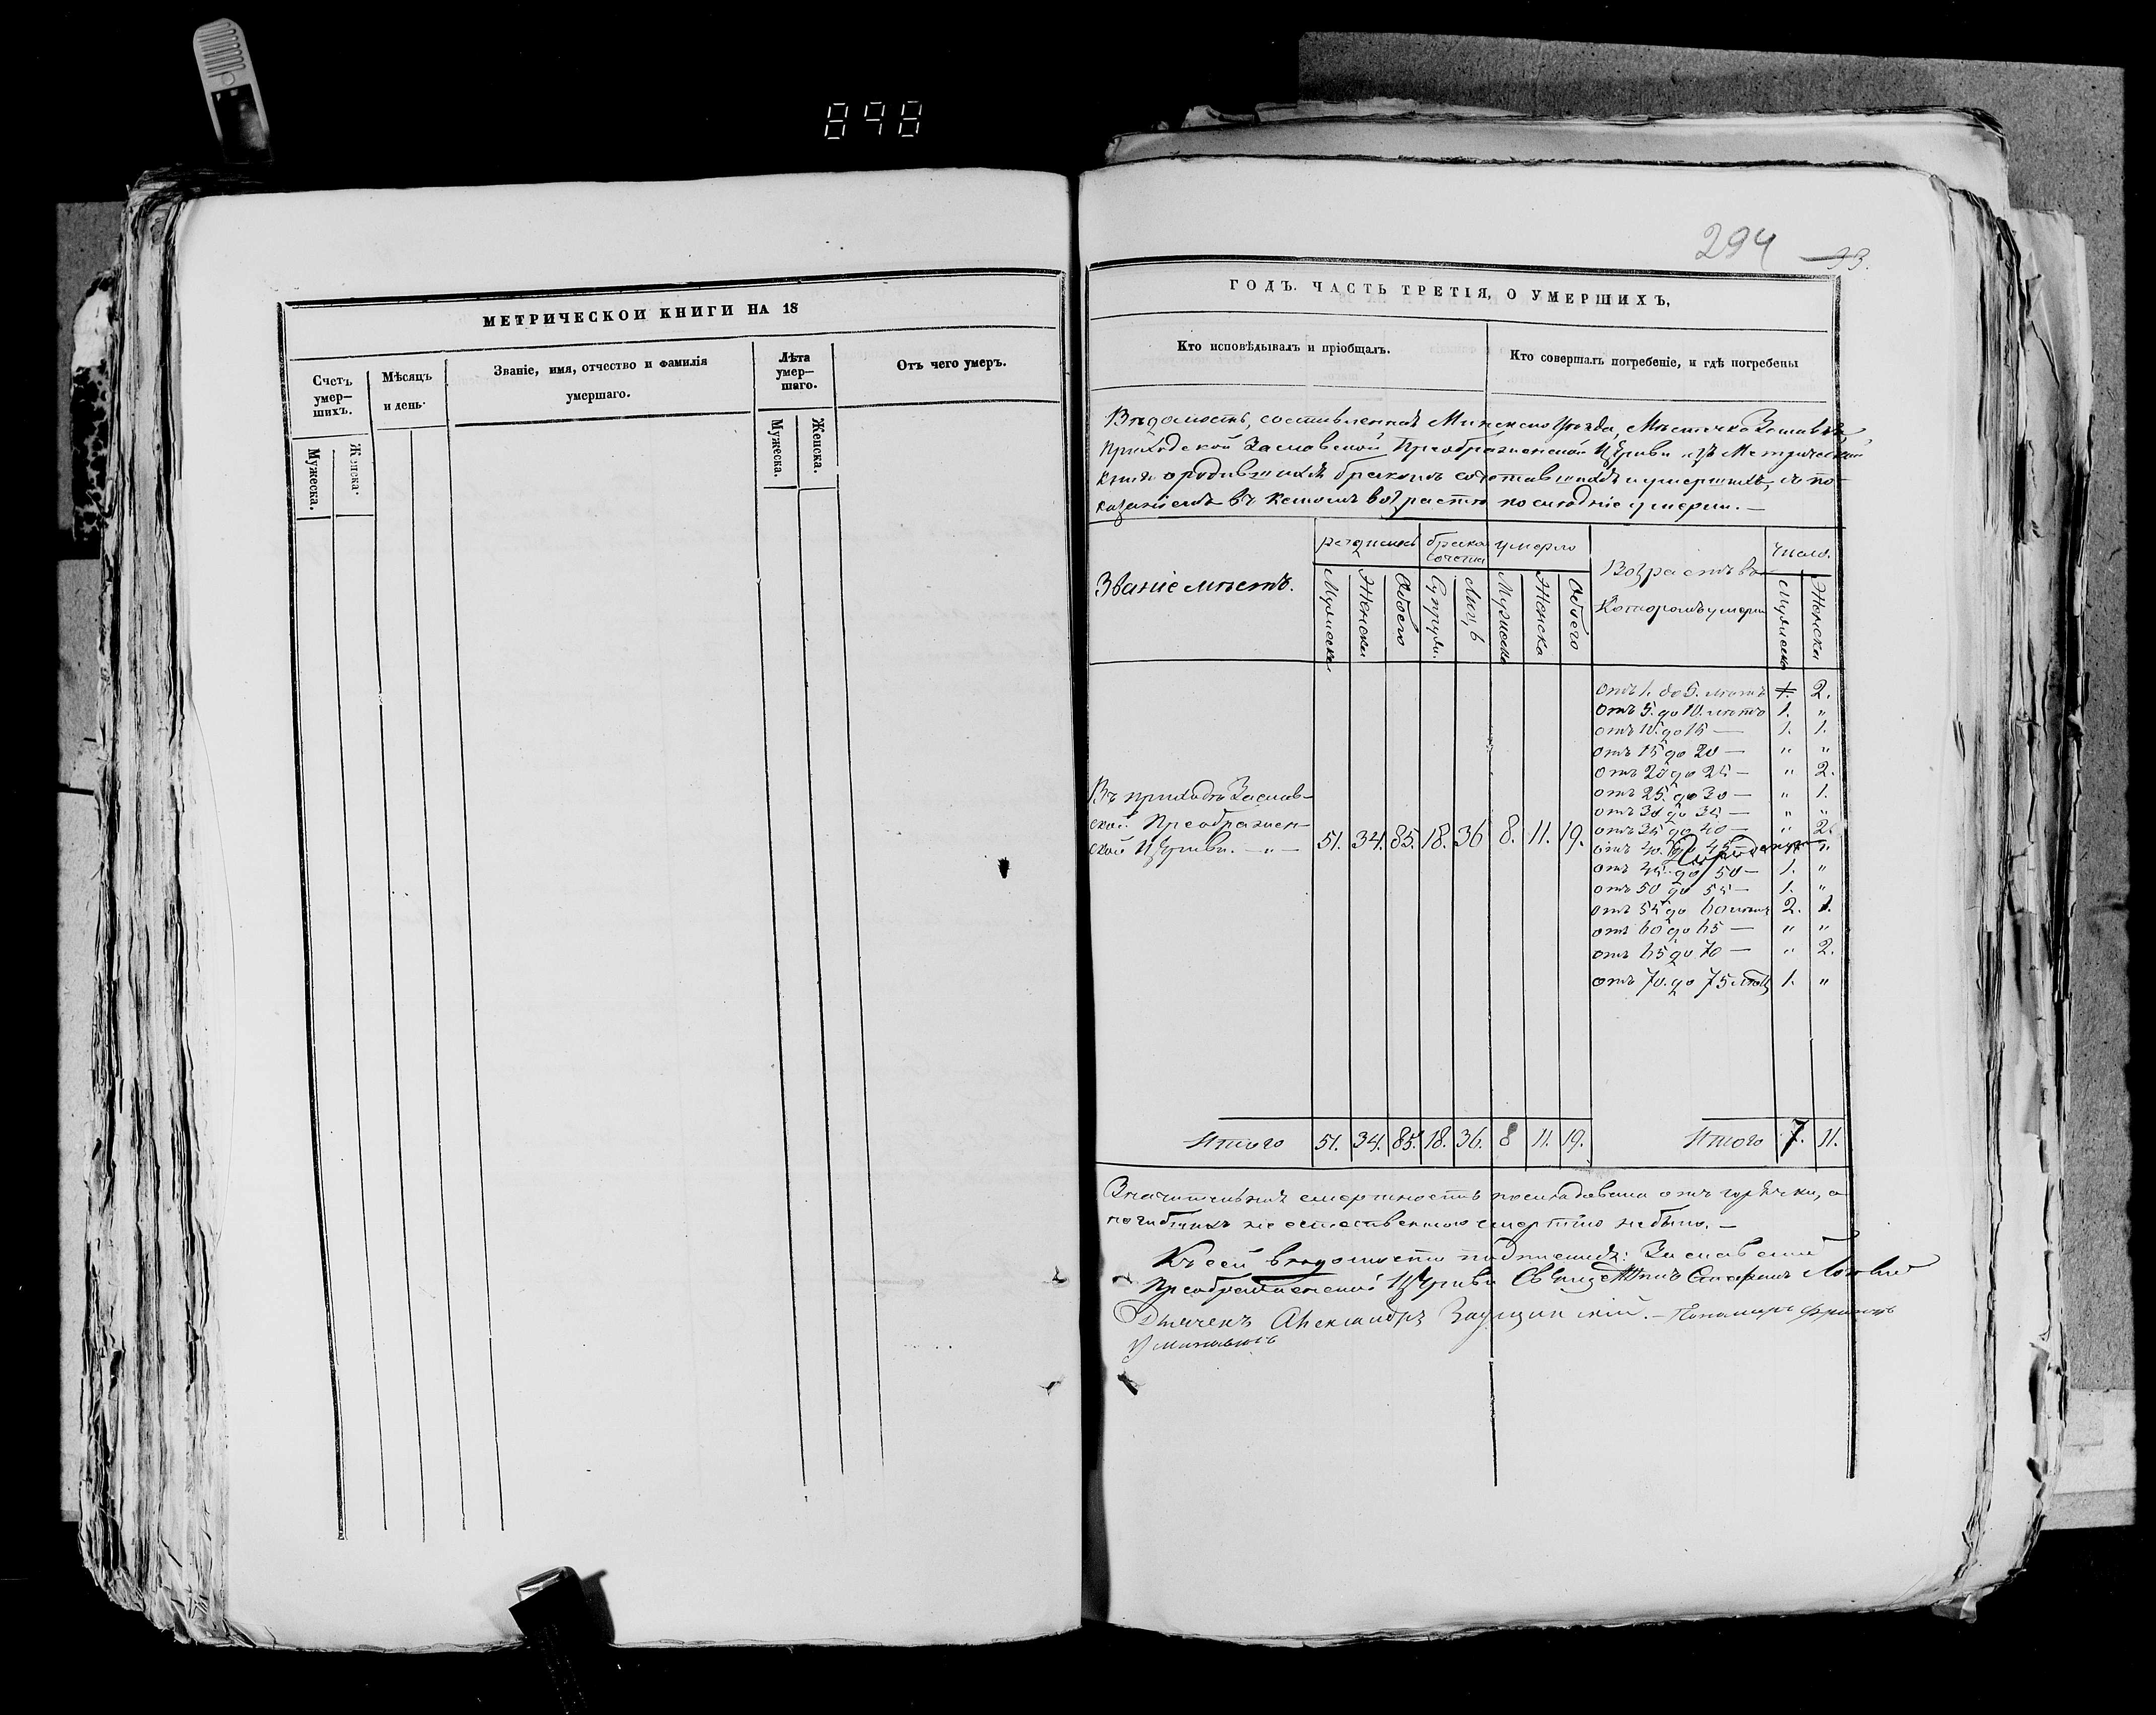 898
МЕТРИЧЕСКОЙ КНИГИ НА 18
Счетъ умер–шихъ.
Мужеска.
Женска.
Мѣсяцъ и день.
Званіе, имя, отчество и фамилія
умершаго.
Лѣта умер–шаго.
Мужеска.
Женска.
Отъ чего умеръ.
294 33.
ГОДЪ. ЧАСТЬ ТРЕТІЯ, О УМЕРШИХЪ,
Кто исповѣдывалъ и пріобщалъ.
Кто совершалъ погребеніе, и гдѣ погребены
Вѣдомость, составленная Минскаго Уѣзда, Мѣстечка Заславля,
Приходской Заславской Преображенской Церкви изъ Метрической
книги о родившихся бракомъ сочетавшихся и умершихъ, съ по–
казаніемъ въ какомъ возрастѣ послѣдніе умерли. —
Званіе мѣстъ.
Мужеска
Женска
Обоего
брака сочета
Супруж.
Лицъ
умерло
Мужеска
Женска
Обоего
Возрастъ въ
Которомъ умерли
Число.
Мужеска
Женска
Въ приходѣ Заслав–
ской Преображен–
ской Церкви. — „ —
51. 34. 85. 18. 36 8. 11. 19.
отъ 1. до 5. лѣтъ 1. 2.
отъ 5. до 10. лѣтъ 1. „
отъ 10. до 15 — 1. 1.
отъ 15 до 20 — „ „
отъ 20 до 25 — „ 2.
отъ 25. до 30 — „ 1.
отъ 30 до 35 — „ „
отъ 35 до 40 — „ 2.
отъ 40. до 45 „
отъ 45. до 50 — 1. „
отъ 50 до 55 — 1. „
отъ 55 до 60 лѣтъ 2. 1.
отъ 60 до 65 — „ „
отъ 65 до 70 — „ 2.
отъ 70. до 75 лѣтъ 1. „
Итого 51. 34. 85. 18. 36. 8 11. 19. Итого 7. 11.
Значительная смертность послѣдовала отъ горячки, а
погибшихъ не естественною смертію не было. —
Къ сей вѣдомости подписались: Заславской
Преображенской Церкви Священникъ
Дьячекъ Александръ — Пономарь